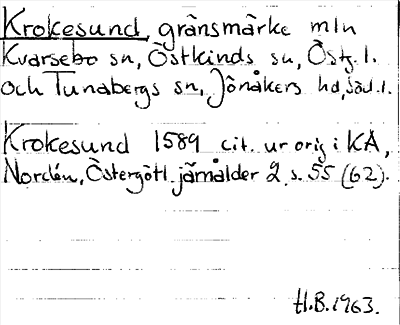 Krokesund, gränsmärke mln
Kvarsebo sn, Östkinds sn, Östg.l.
och Tunabergs sn, Jönåkers hd, Söd.l.
Krokesund 1589 cit. ur orig i KA,
Nordén, Östergötl. järnålder 2, s. 55 (62).
H.B. 1963.